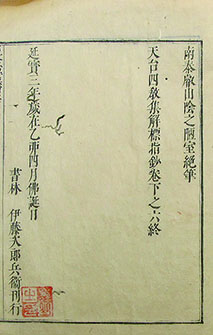 南泰叡山陰之陋室絕筆
天台四教集解標指鈔卷下之六終
延寶三年歲在乙卯四月佛誕日
書林 伊藤太郎兵衞刊行